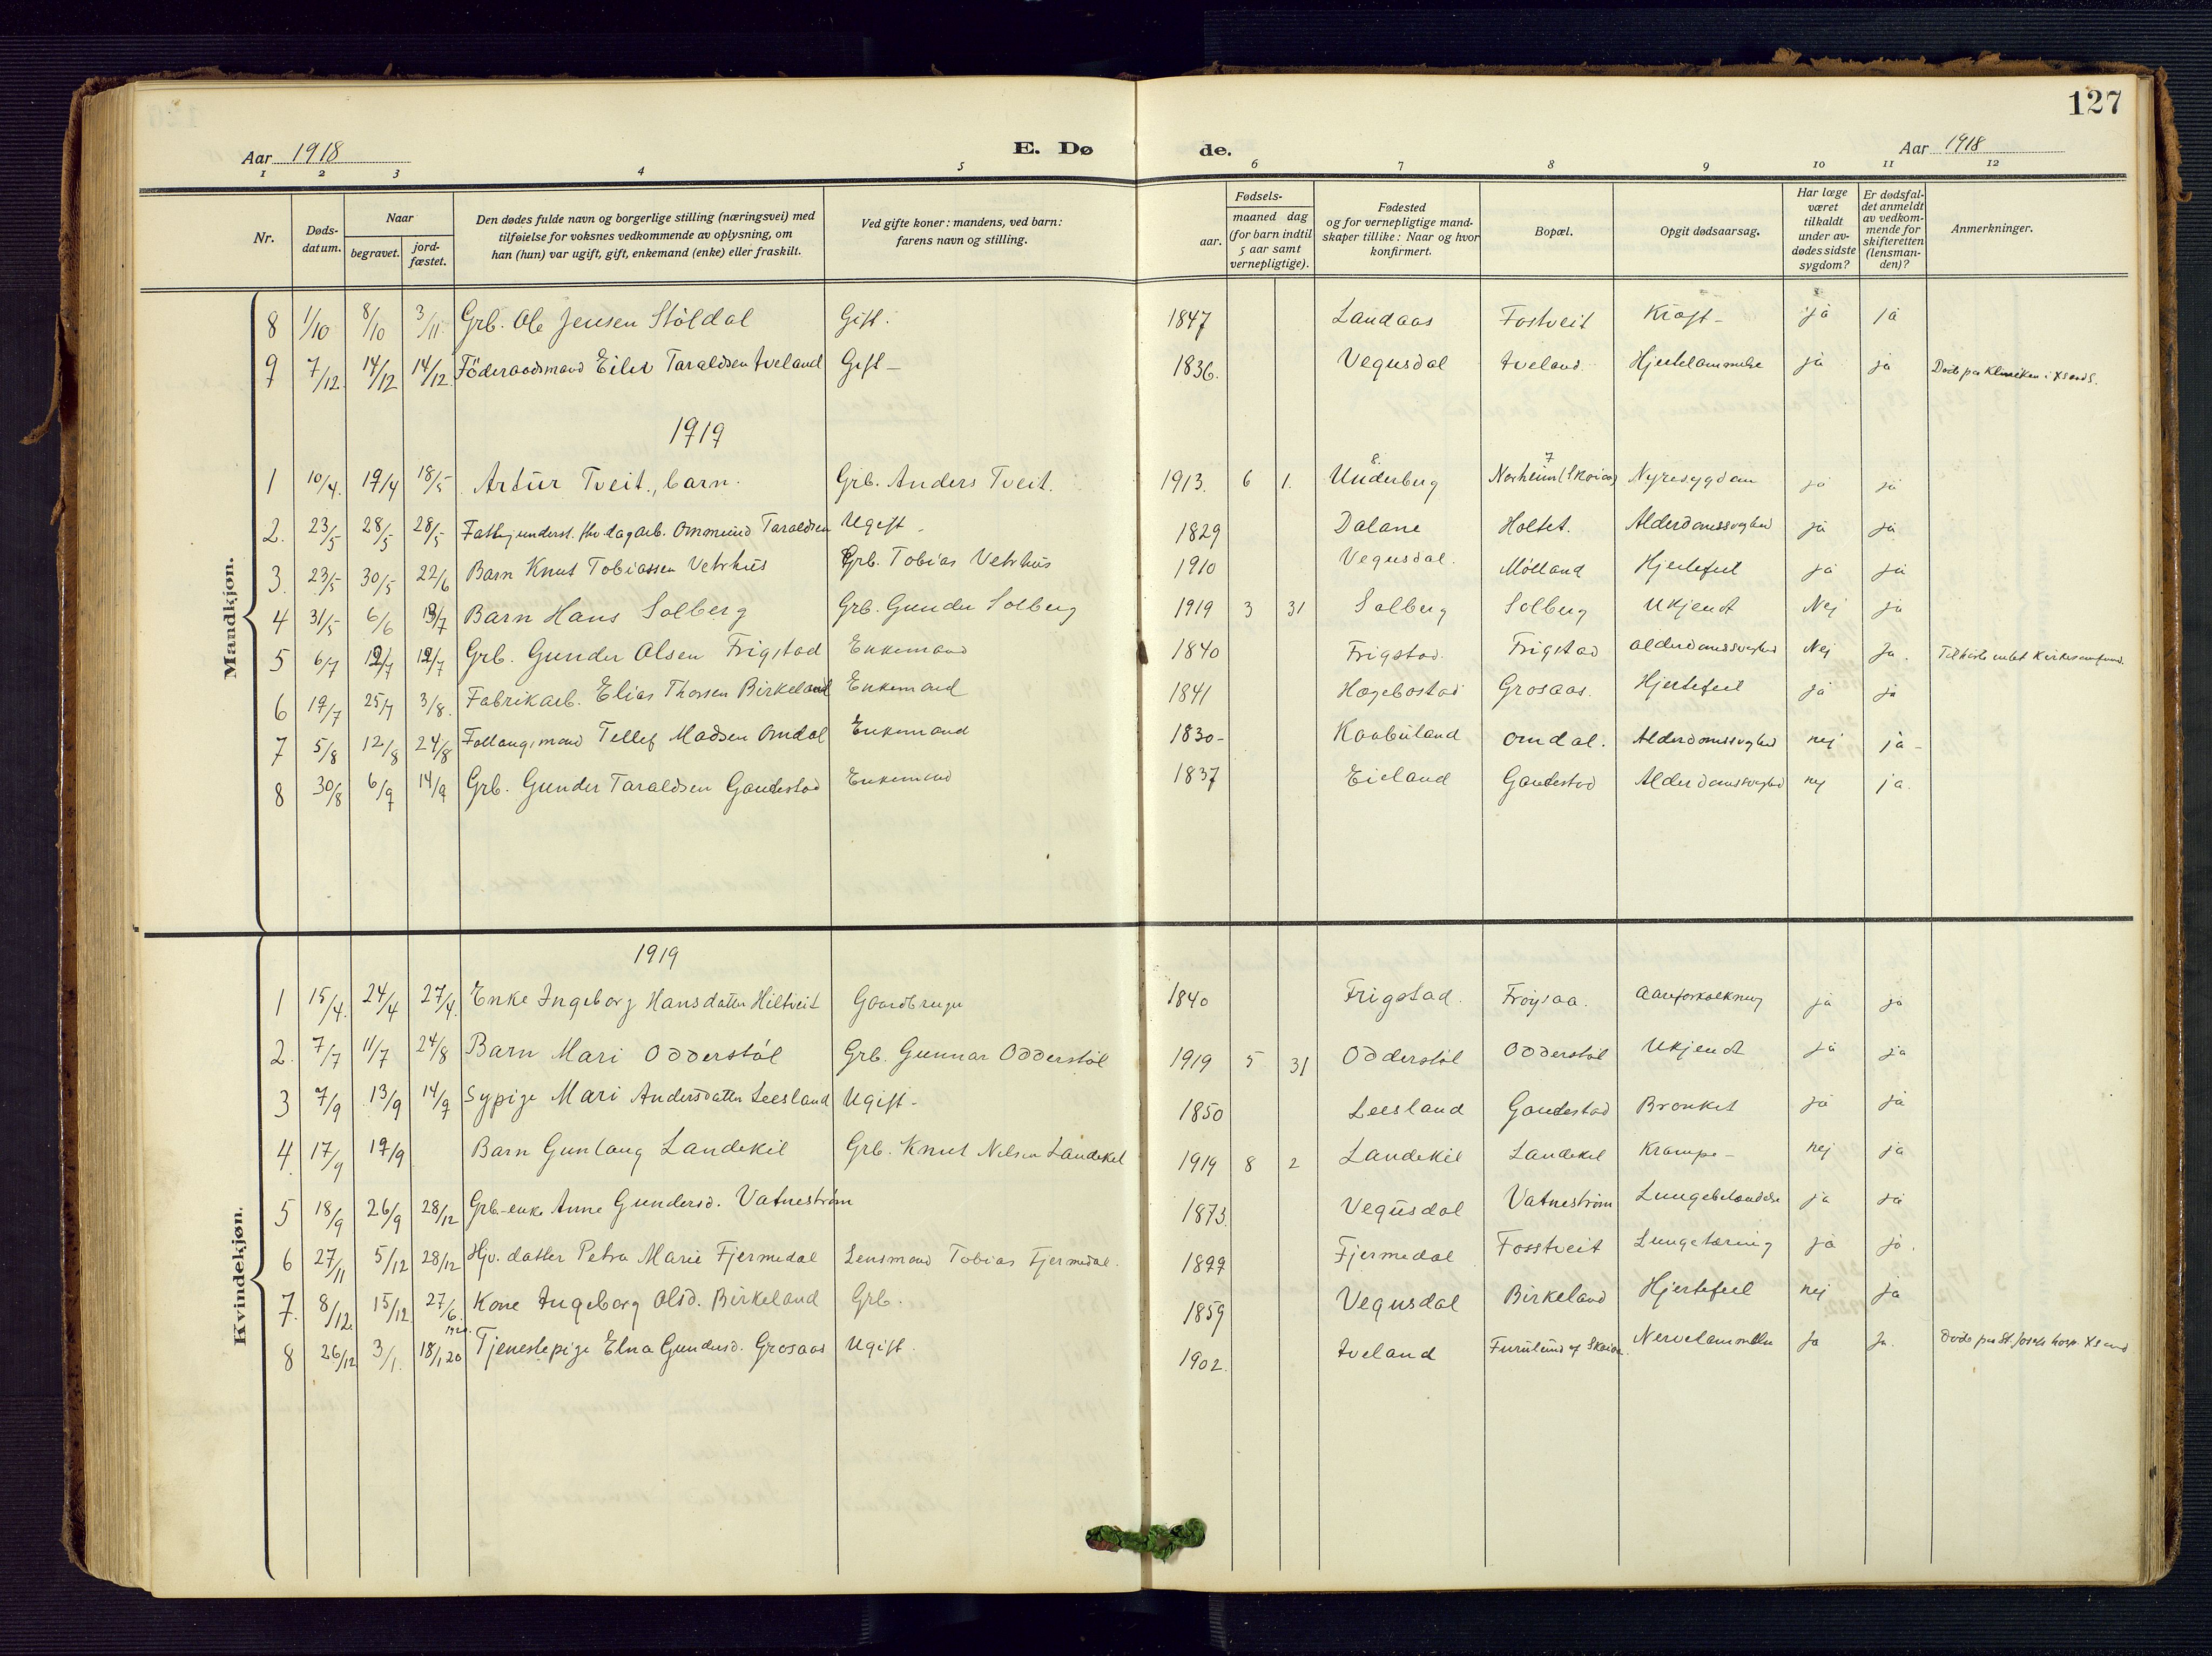 127
Aar 1918 E. Dø de. Aar 1918
1 2 3 4 5 6 7 8 9 10 11 12
Nr. Døds-datum. Naar begravet. jord-fæstet. Den dødes fulde navn og borgerlige stilling (næringsvei) med tilføielse for voksnes vedkommende av oplysning, om han (hun) var ugift, gift, enkemand (enke) eller fraskilt. Ved gifte koner: mandens, ved barn: farens navn og stilling. Fødsels- aar. maaned dag (for barn indtil 5 aar samt vernepligtige). Fødested og for vernepligtige mand-skaper tillike: Naar og hvor konfirmert. Bopæl. Opgit dødsaarsag. Har læge været tilkaldt under av-dødes sidste sygdom? Er dødsfal-det anmeldt av vedkom-mende for skifteretten (lensman-den)? Anmerkninger.
Mandkjøn.
8 1/10 8/10 3/11 Grb. Ole Jensen Stöldal Gift. 1847 Landaas Fostveit Kræft - ja ja
9 7/12 14/12 14/12 Föderaadsmand Eilev Taraldsen Aveland Gift - 1836. Vegusdal Aveland Hjertelammelse ja ja Døde paa Kliniken i Xsand S.
1919
1 10/4. 19/4 18/5 Artur Tveit, barn. Grb. Anders Tveit. 1913. 6 1. 8. Underberg 7 Norheim (Skoies) Nyresygdom ja ja
2. 23/5 28/5 28/5 Fattigunderst. fhv. dagarb. Ommund Taraldsen Ugift - 1829 Dalane Holtet. Alderdomssvaghed ja ja
3. 23/5 30/5 22/6 Barn Knut Tobiassen Vehrhus Grb. Tobias Vehrhus 1910 Vegusdal. Mölland Hjertefeil ja ja
4 31/5 6/6 13/7 Barn Hans Solberg Grb. Gunder Solberg 1919 3 31 Solberg Solberg Ukjendt Nej ja
5 6/7 12/7 12/7 Grb. Gunder Olsen Frigstad Enkemand 1840 Frigstad. Frigstad alderdomssvaghed Nej Ja. Tilhörte intet Kirkesamfund.
6 19/7 25/7 3/8. Fabrikarb. Elias Thorsen Birkeland Enkemand 1841 Hægebostad Grosaas. Hjertefeil ja ja
7 5/8 12/8 24/8 Tellef Madsen Omdal Enkemand 1830- Kaabuland Omdal. Alderdomssvaghed nej ja -
8 30/8 6/9 14/9 Grb. Gunder Taraldsen Gautestad Enkemand 1837 Eieland Gautestad Alderdomssvaghed nej ja.
Kvindekjøn.
1919
1 15/4. 24/4 27/4. Enke Ingeborg Hansdatter Hiltveit Gaardbruger 1840 Frigstad. Fröysaa. Aareforkalkning ja ja
2. 7/7 11/7 24/8 Barn Mari Odderstöl Grb. Gunnar Odderstöl 1919 5 31 Odderstöl Odderstöl Ukjendt ja ja
3 7/9 13/9 14/9 Sypige Mari Andersdatter Leesland Ugift - 1850 Leesland Gautestad Bronkit ja ja
4 17/9 19/9 Barn Gunlaug Landekil Grb. Knut Nilsen Landekil 1919 8 2 Landekil Landekil Krampe - nej ja
5 18/9 26/9 28/12 Grb-enke Anne Gundersd. Vatneström 1873. Vegusdal Vatneström Lungebetændelse ja ja
6 27/11 5/12 28/12 Hjv. datter Petra Marie Fjermedal Lensmand Tobias Fjermedal. 1899 Fjermedal Fosstveit Lungetæring ja ja.
7. 8/12. 15/12 27/6. 1920. Kone Ingeborg Olsd. Birkeland Grb. 1859 Vegusdal Birkeland Hjertefeil nej ja
8 26/12 3/1. 18/1 20 Tjenestepige Elna Gundersd. Grosaas Ugift. 1902. Aveland Furulund af Nervelammelse Ja Ja. Døde paa St. Josefs hosp. Xsand